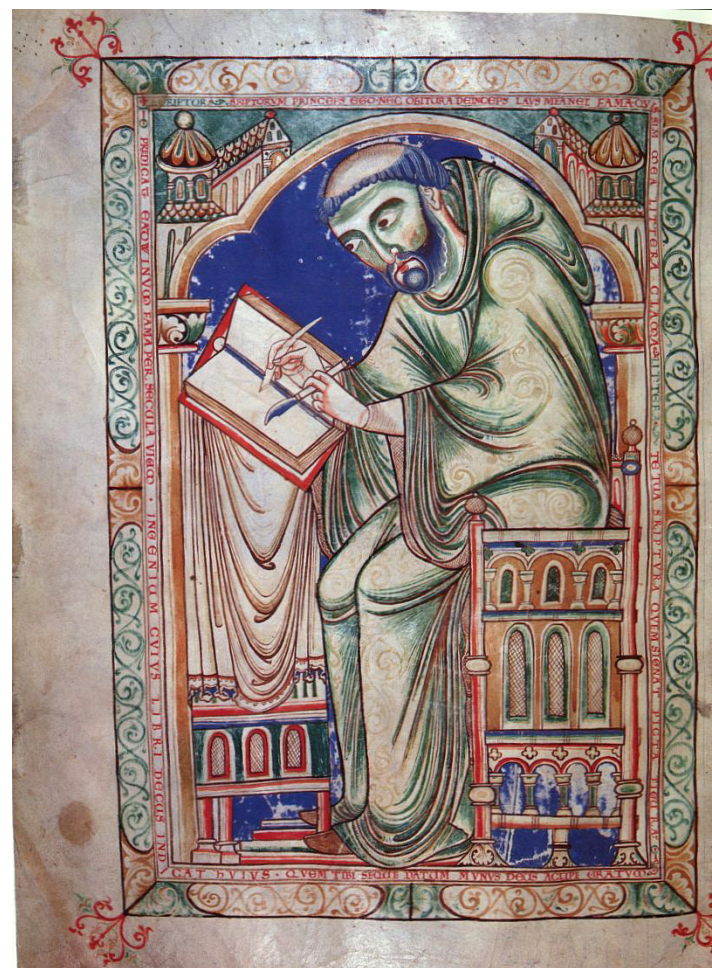 SCRIPTORVM PRINCEPS EGO· NEC OBITVRA DEINCEPS LAVS MEA NEC FAMA QVI
SIM MEA LITTERA CLAMA TE TVA SCRIPTVRA QVEM SIGNAT PICTA FIGVRA
PREDICAT FAMA PER SECVLA VIVVM · INGENIVM CVIVS LIBRI DECVS IND
CAT hVIVS · QVEM TIBI SEQVE DATVM MVNVS DEVS ACCIPE GRATVM